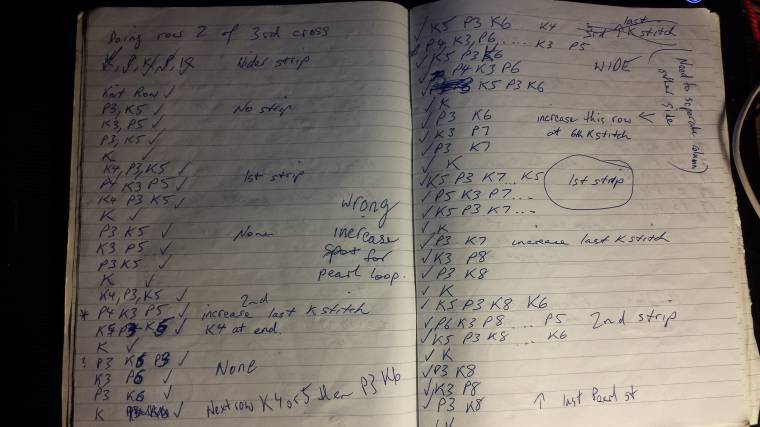 Doing row 2 of 3rd cross
K, P, K, P, K Wider strip
Knit Row ✓
P3, K5 ✓ No strip
K3, P5 ✓
P3, K5 ✓
K ✓
K4, P3, K5 ✓ 1st strip
P4 K3 P5 ✓
K4 P3 K5 ✓
K ✓
P3 K5 ✓ None
K3 P5 ✓
P3 K5 ✓
K ✓
wrong
increase
spot for
pearl loop.
K4, P3, K5 ✓ 2nd
* P4 K3 P5 ✓ increase last K stitch
K5 P3 K6 ✓ K4 at end.
K ✓
? P3 K6 P3 ✓ None
K3 P6 ✓
P3 K6 ✓
K ✓ Next row K4 or 5 then P3 K6
✓ K5 P3 K6 K4 last
3rd K stitch
P4, K3, P6, .... K3 P5
✓ K5 P3 K6 WIDE
P4 K3 P6
K5 P3 K6
✓ K
✓ P3 K6 increase this row
✓ K3 P7 at 6th K stitch
✓ P3 K7
✓ K
Need to separate
other side
✓ K5 P3 K7... K5 1st strip
✓ P5 K3 P7....
✓ K5 P3 K7...
✓ K
✓ P3 K7 increase last K stitch
✓ K3 P8
✓ P3 K8
✓ K
✓ K5 P3 K8 K6
✓ P6 K3 P8 .... P5 2nd strip
✓ K5 P3 K8 ... K6
✓ K
✓ P3 K8
✓ K3 P8
✓ P3 K8 ↑ last Pearl st
✓ K